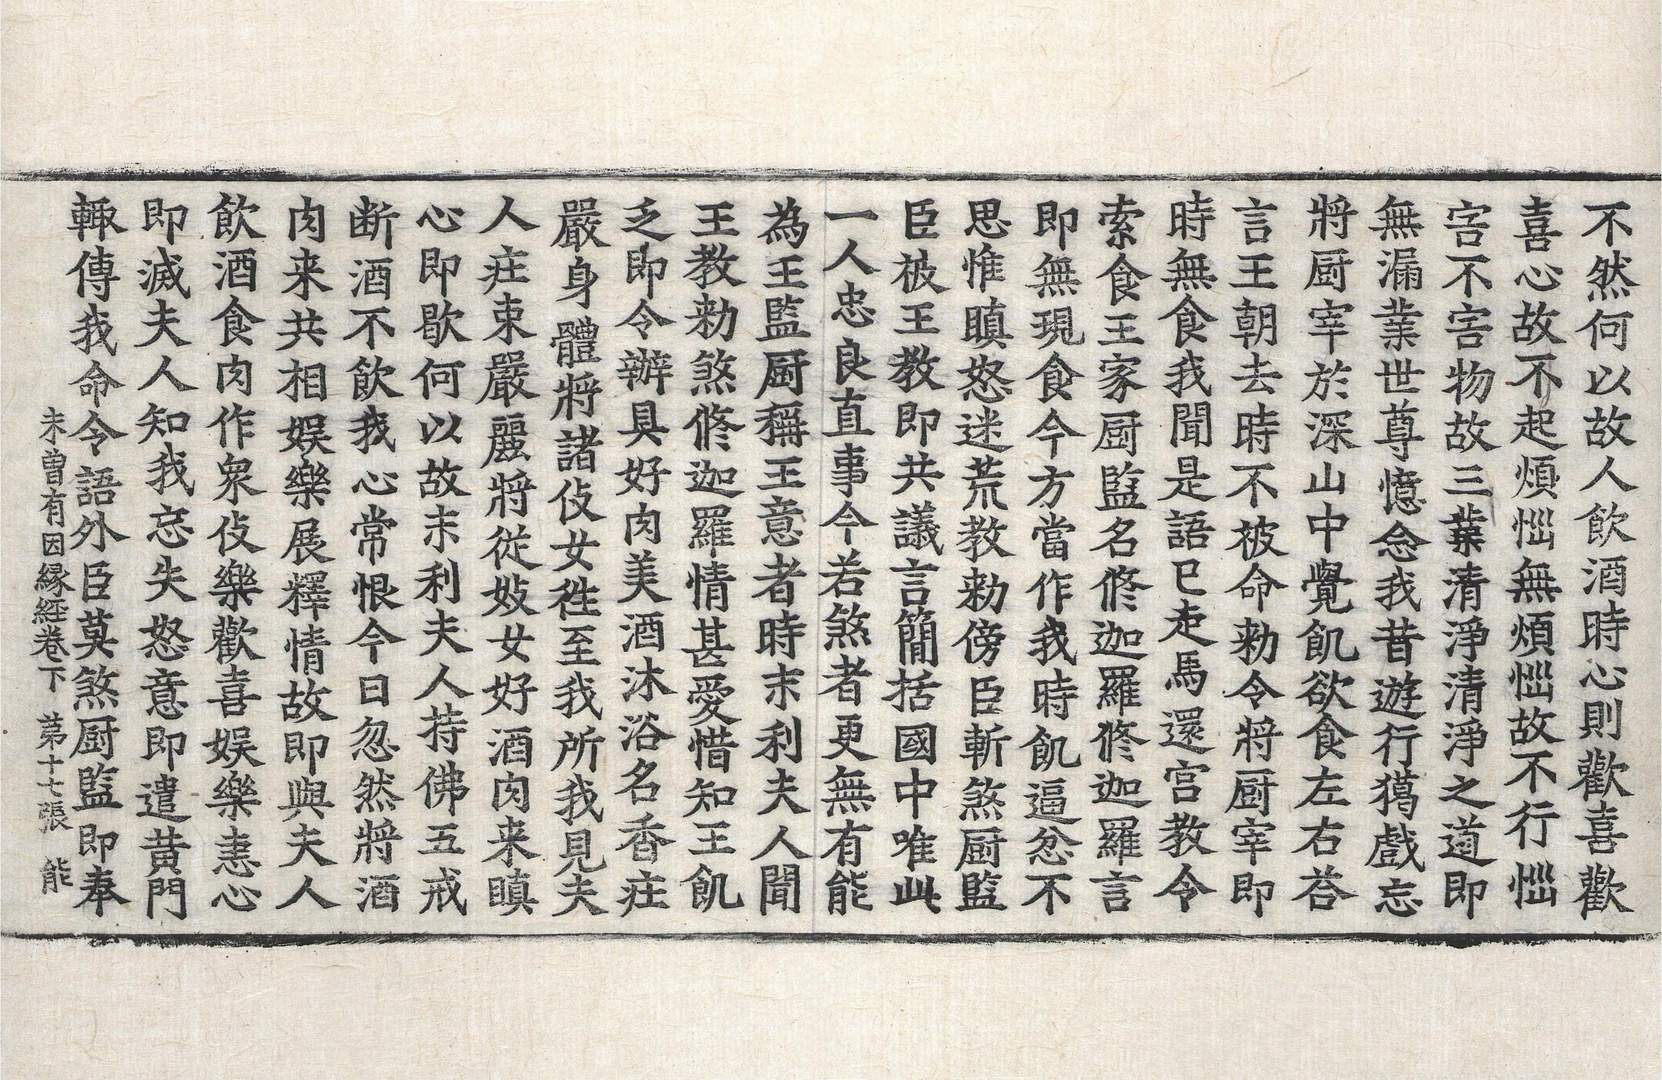 不然何以故人飲酒時心則歡喜歡
喜心故不起煩惱無煩惱故不行惱
害不害物故三業清淨清淨之道即
無漏業世尊憶念我昔遊行獦戲忘
將厨宰於深山中覺飢欲食左右荅
言王朝去時不被命勑令將厨宰即
時無食我聞是語已走馬還宫教令
索食王家厨監名修迦羅修迦羅言
即無現食今方當作我時飢逼忿不
思惟瞋怒迷荒教勑傍臣斬煞厨監
臣被王教即共議言簡括國中唯此
一人忠良直事今若煞者更無有能
為王監厨稱王意者時末利夫人聞
王教勑煞修迦羅情甚愛惜知王飢
乏即令辦具好肉美酒沐浴名香莊
嚴身體將諸伎女往至我所我見夫
人莊束嚴麗將從妓女好酒肉来瞋
心即歇何以故末利夫人持佛五戒
断酒不飲我心常恨今日忽然將酒
肉来共相娛樂展釋情故即與夫人
飲酒食肉作衆伎樂歡喜娛樂恚心
即滅夫人知我忘失怒意即遣黄門
輙傳我命令語外臣莫煞厨監即奉
未曽有因縁経卷下　第十七張　能